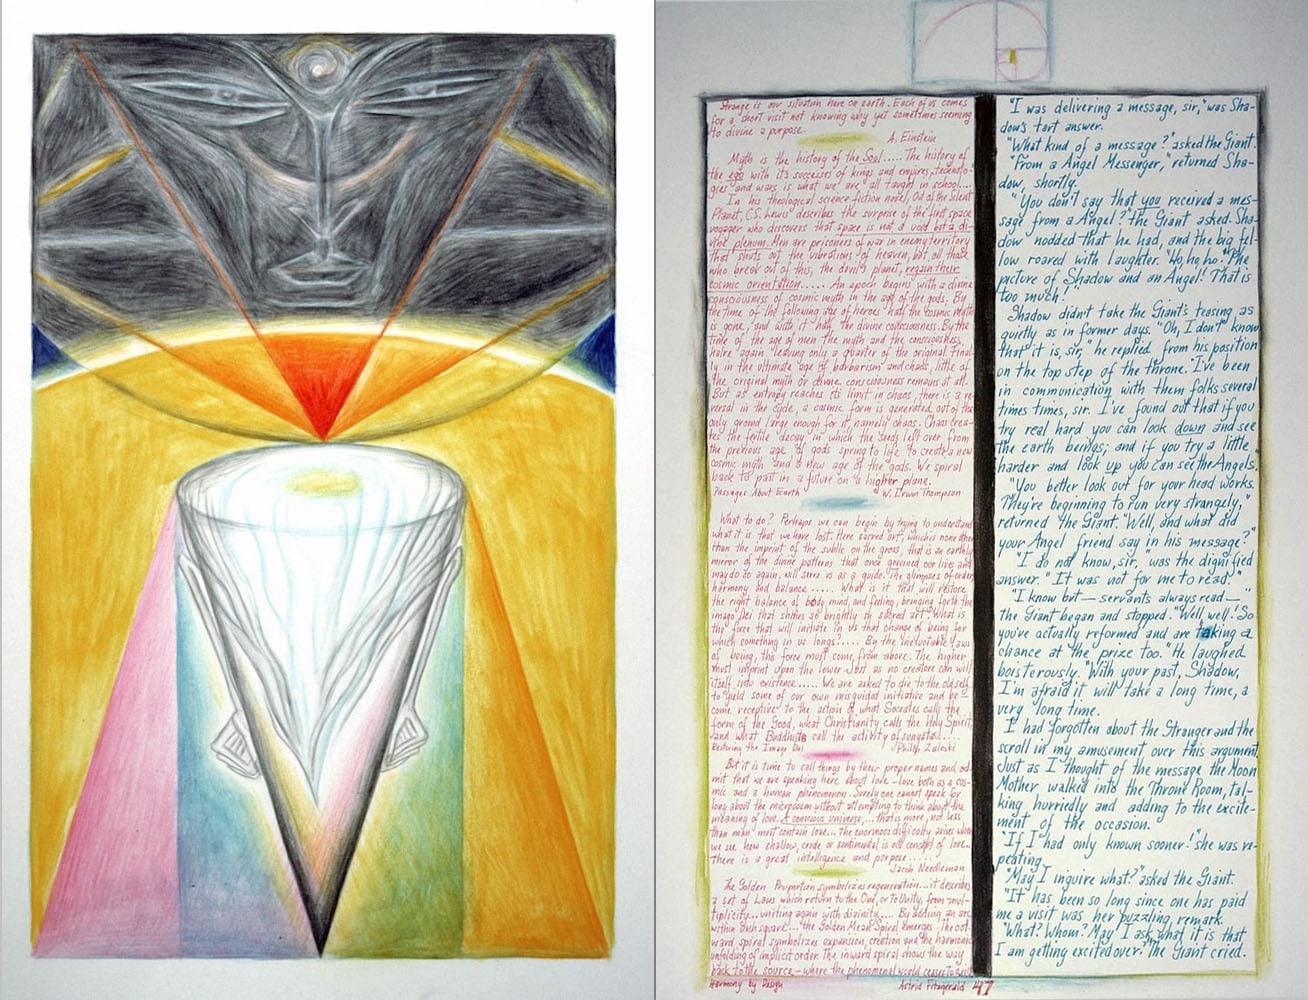 Strange is our situation here on earth. Each of us comes
for a short visit not knowing why yet sometimes seeming
to divine a purpose.
A. Einstein
Myth is the history of the Soul..... The history of
the ego with its successes of kings and empires, technolo-
gies and wars is what we are all taught in school....
In his theological science fiction novel, Out of the Silent
Planet, C.S. Lewis describes the surprise of the first space
voyager who discovers that space is not a void but a di-
vine plenum. Men are prisoners of war in enemy territory
that shuts out the vibrations of heaven, but all those
who break out of this, the devil's planet, regain their
cosmic orientation..... An epoch begins with a divine
consciousness of cosmic myth in the age of the gods. By
the time of the following age of heroes half the cosmic myth
is gone, and with it half the divine consciousness. By the
time of the age of men the myth and the consciousness
halve again leaving only a quarter of the original. Final-
ly in the ultimate age of barbarism and chaos, little of
the original myth or divine consciousness remains at all.
But as entropy reaches its limit in chaos, there is a re-
versal in the cycle, a cosmic form is generated out of the
only ground large enough for it, namely chaos. Chaos crea-
tes the fertile decay in which the seeds left over from
the previous age of gods spring to life to create a new
cosmic myth and a new age of the gods. We spiral
back to past in a future on a higher plane.
Passages About Earth W. Irwin Thompson
What to do? Perhaps we can begin by trying to understand
what it is that we have lost. Here sacred art, which is none other
than the imprint of the subtle on the gross, that is an earthly
mirror of the divine patterns that once governed our lives and
may do so again, will serve us as a guide. The glimpses of order,
harmony and balance..... What is it that will restore
the right balance of body mind, and feeling, bringing forth the
imago Dei that shines so brightly in sacred art? What is
the force that will initiate in us that change of being for
which something in us longs?.... By the ineluctable laws
of being, this force must come from above. The higher
must imprint upon the lower. Just as no creature can will
itself into existence..... We are asked to die to the old self
to yield some of our own misguided initiative and be-
come receptive to the action of what Socrates calls the
form of the Good, what Christianity calls the Holy Spirit
and what Buddhists call the activity of sunyata....
Restoring the Image Dei Philip Zaleski
But it is time to call things by their proper names and ad-
mit that we are speaking here about love - love both as a cos-
mic and a human phenomenon. Surely one cannot speak for
long about the microcosm without attempting to think about the
meaning of love. A conscious universe,... that is more, not less
than man must contain love... the enormous difficulty arises when
we see how shallow, crude or sentimental is our concept of love...
there is a great intelligence and purpose.....
Jacob Needleman
The Golden Proportion symbolizes regeneration... it describes
a set of Laws which return to the One, or to Unity, from mul-
tiplicity... uniting again with divinity.... By adding an arc
within each square... the Golden Mean Spiral emerges. The out-
ward spiral symbolizes expansion, creation and the harmonic
unfolding of implicit order. The inward spiral shows the way
back to the source - where the phenomenal world ceases to exist
Harmony by Design Astrid Fitzgerald 47
"I was delivering a message, sir," was Sha-
dow's tart answer.
"What kind of a message?" asked the Giant.
"From a Angel Messenger," returned Sha-
dow, shortly.
"You don't say that you received a mes-
sage from a Angel?" the Giant asked. Sha-
dow nodded that he had, and the big fel-
low roared with laughter. "Ho, ho, ho! The
picture of Shadow and an Angel! That is
too much!"
Shadow didn't take the Giant's teasing as
quietly as in former days. "Oh, I don't know
that it is, sir," he replied from his position
on the top step of the throne. "I've been
in communication with them folks several
times times, sir. I've found out that if you
try real hard you can look down and see
the earth beings; and if you try a little
harder and look up you can see the Angels."
"You better look out for your head works.
They're beginning to run very strangely,"
returned the Giant. "Well, and what did
your Angel friend say in his message?"
"I do not know, sir," was the dignified
answer. "It was not for me to read."
"I know but — servants always read —"
the Giant began and stopped. "Well, well! So
you've actually reformed and are taking a
chance at the prize too." He laughed
boisterously. "With your past, Shadow,
I'm afraid it will take a long time, a
very long time.
I had forgotten about the Stranger and the
scroll in my amusement over this argument.
Just as I thought of the message the Moon
Mother walked into the Throne Room, tal-
king hurriedly and adding to the excite-
ment of the occasion.
"If I had only known sooner!" she was re-
peating.
"May I inquire what?" asked the Giant.
"It has been so long since one has paid
me a visit was her puzzling remark.
"What? Whom? May I ask what it is that
I am getting excited over." The Giant cried.